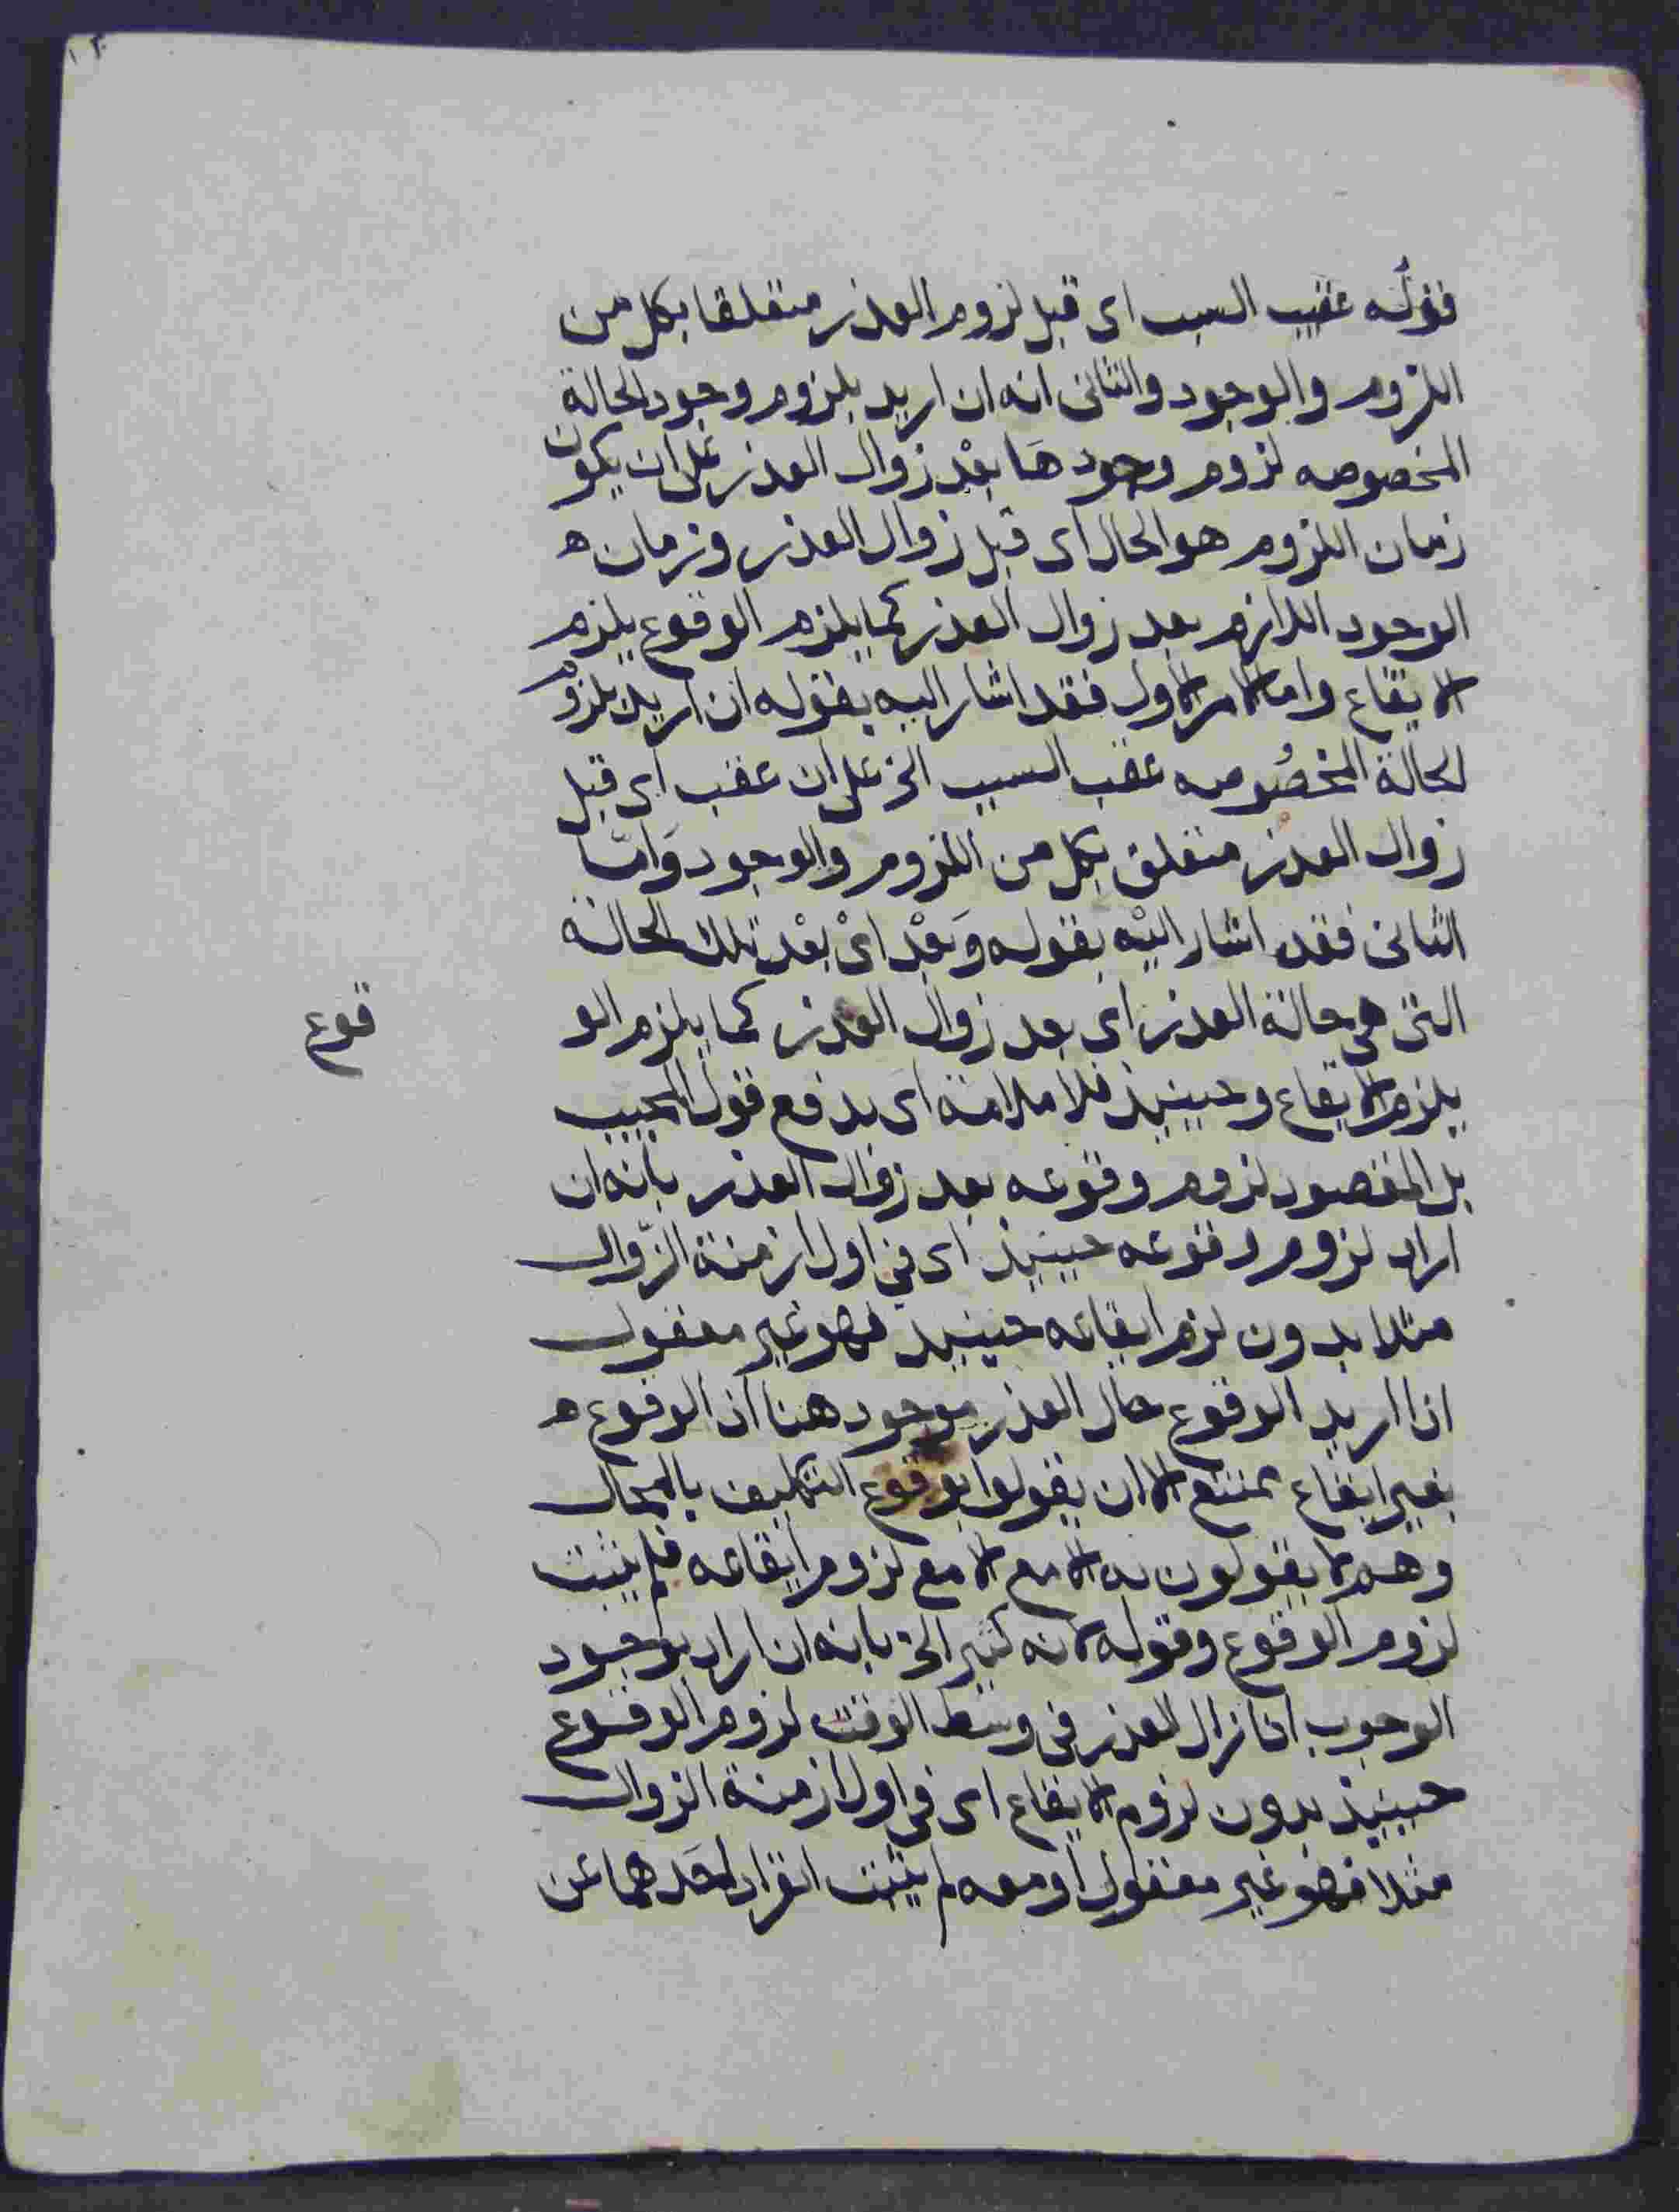 ١٢
فقوله عقيب السبب اى قبل لزوم العذر متعلقا بكل من
اللزوم والوجود والثانى انه ان اريد بلزوم وجود الحالة
المخصوصه لزوم وجودها بعد زوال العذر على ان يكون
زمان اللزوم هو الحال اى قبل زوال العذر وزمان ه
الوجود اللازم بعد زوال العذر كما يلزم الوقوع يلزم
الايقاع واما الامر الاول فقد اشار اليه بقوله ان اريد بلزوم
الحالة المخصوصه عقب السبب الخ على ان عقب اى قبل
زوال العذر متعلق بكل من اللزوم والوجود وامّا
الثانى فقد اشار اليه بقوله وبعد اى بعد تلك الحالة
التى هى حالة العذر اى بعد زوال العذر كما يلزم الو
قوع
يلزم الايقاع وحينيذ فلا ملامة اى يدفع قول المجيب
بل المقصود لزوم وقوعه بعد زوال العذر بانه ان
اراد لزوم وقوعه حينيذ اى فى اول ازمنة الزّوال
مثلا بدون لزم ايقاعه حينيذ فهو غير معقول
اذا اريد الوقوع حال العذر موجود هنا اذ الوقوع ه
بغير ايقاع ممتنع الا ان يقولوا بوقوع التكليف بالمحال
وهم لا يقولون به الا مع الا مع لزوم ايقاعه فلم يثبت
لزوم الوقوع وقوله لانه كثير الخ بانه ان اراد بوجود
الوجوب اذا زال العذر فى وسط الوقت لزوم الوقوع
حينيذ بدون لزوم الايقاع اى فى اول ازمنة الزوال
مثلا فهو غير معقول او معه لم يثبت انفراد احدهما عن